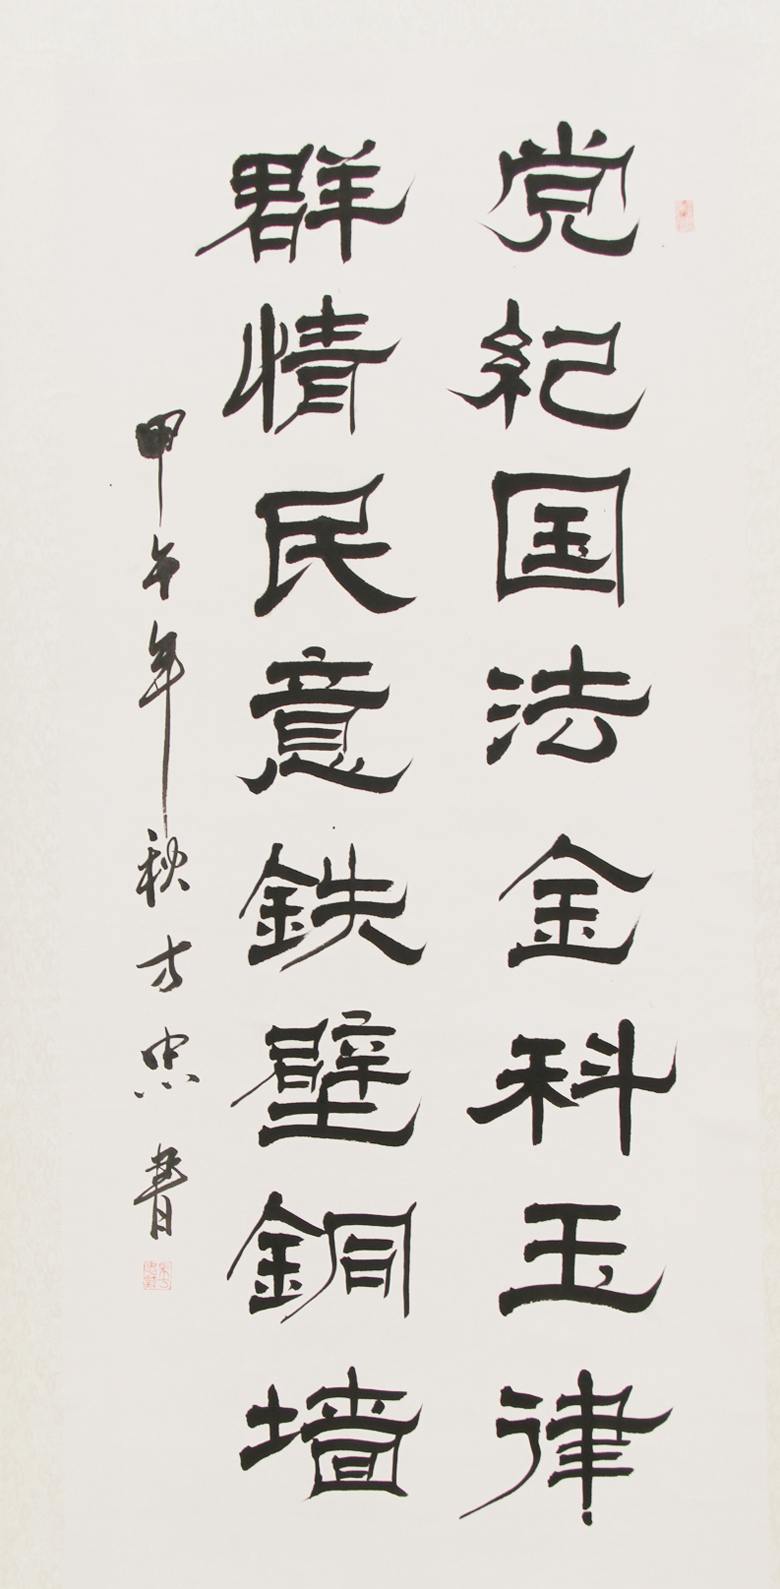 党紀国法金科玉律
群情民意鉄壁銅墙
甲午年秋方忠書